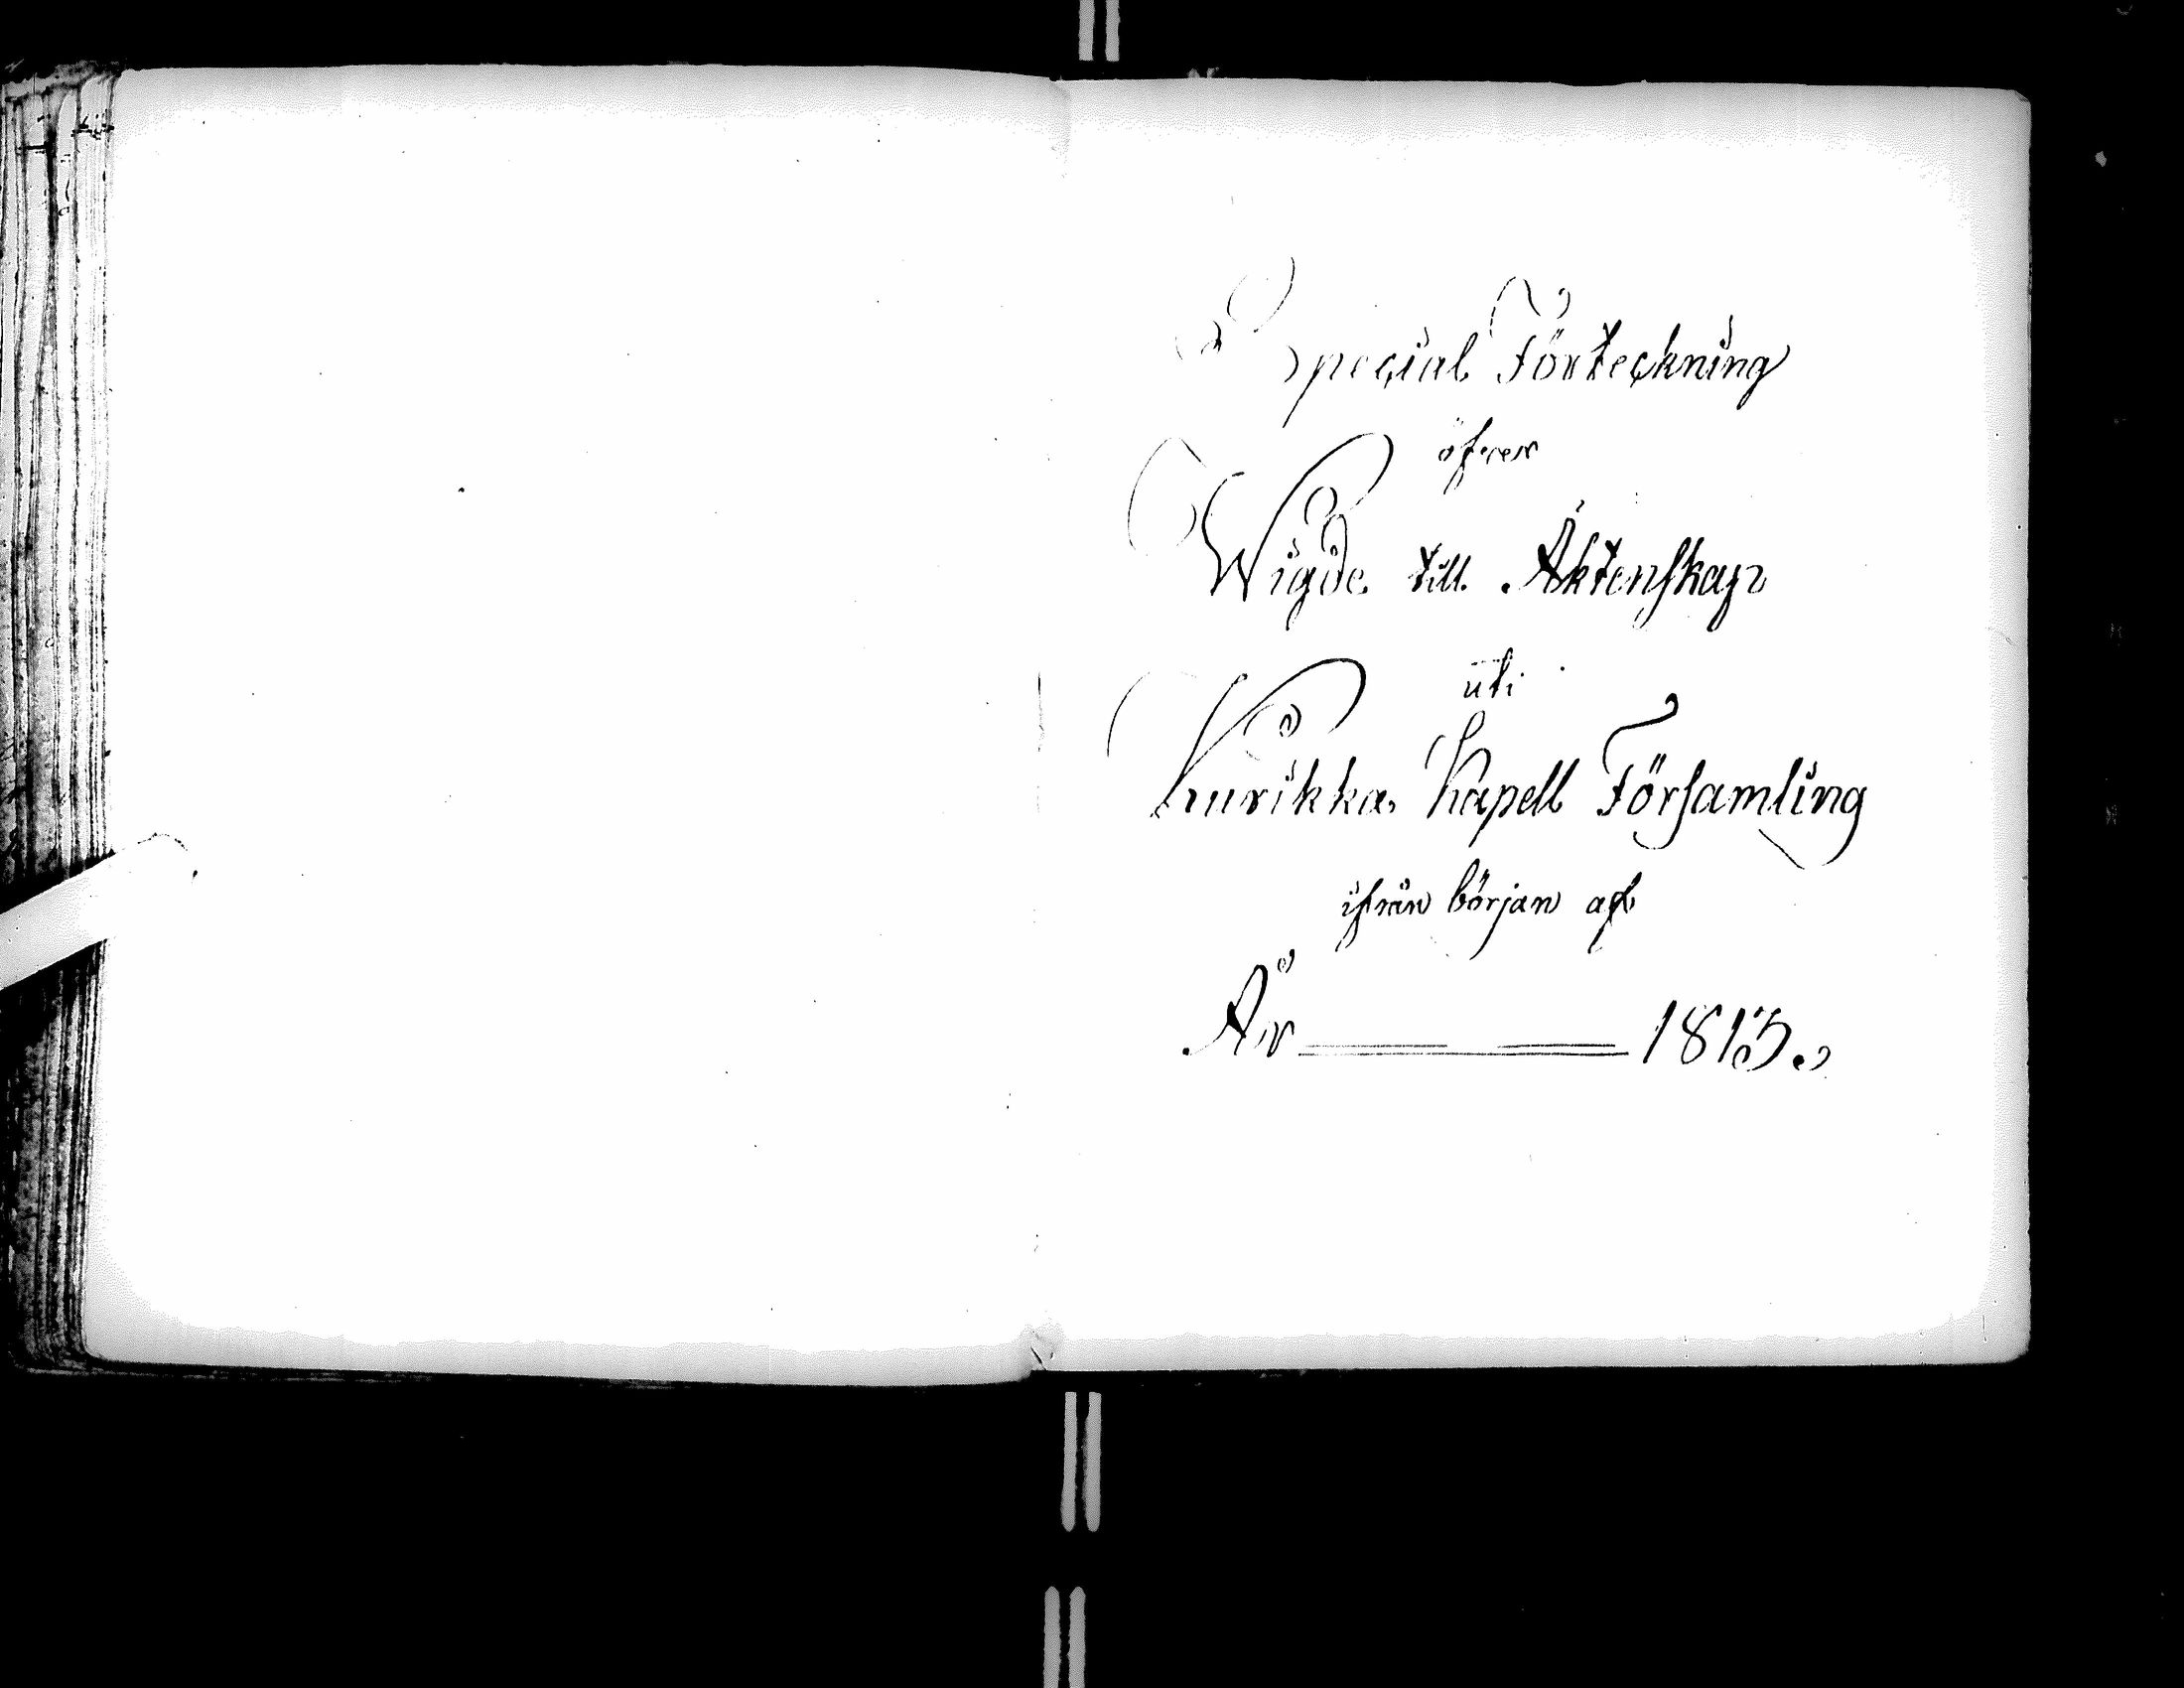 Special Förteckning
öfver
Wigde till Äktenskap
uti
Kurikka Kapell Församling
ifrån början af
År 1813.